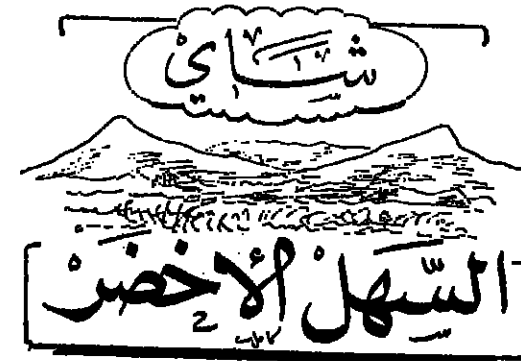 شاي
السهل الأخضر